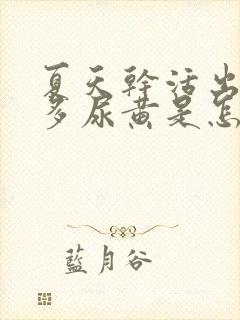 夏天幹活出
多尿黃是怎
藍月谷